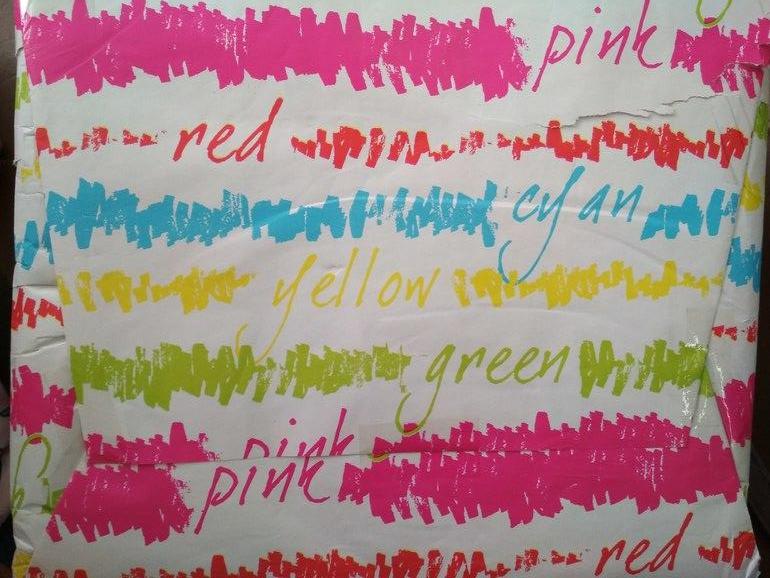 pink
red
cyan
yellow
green
pink
pink
red